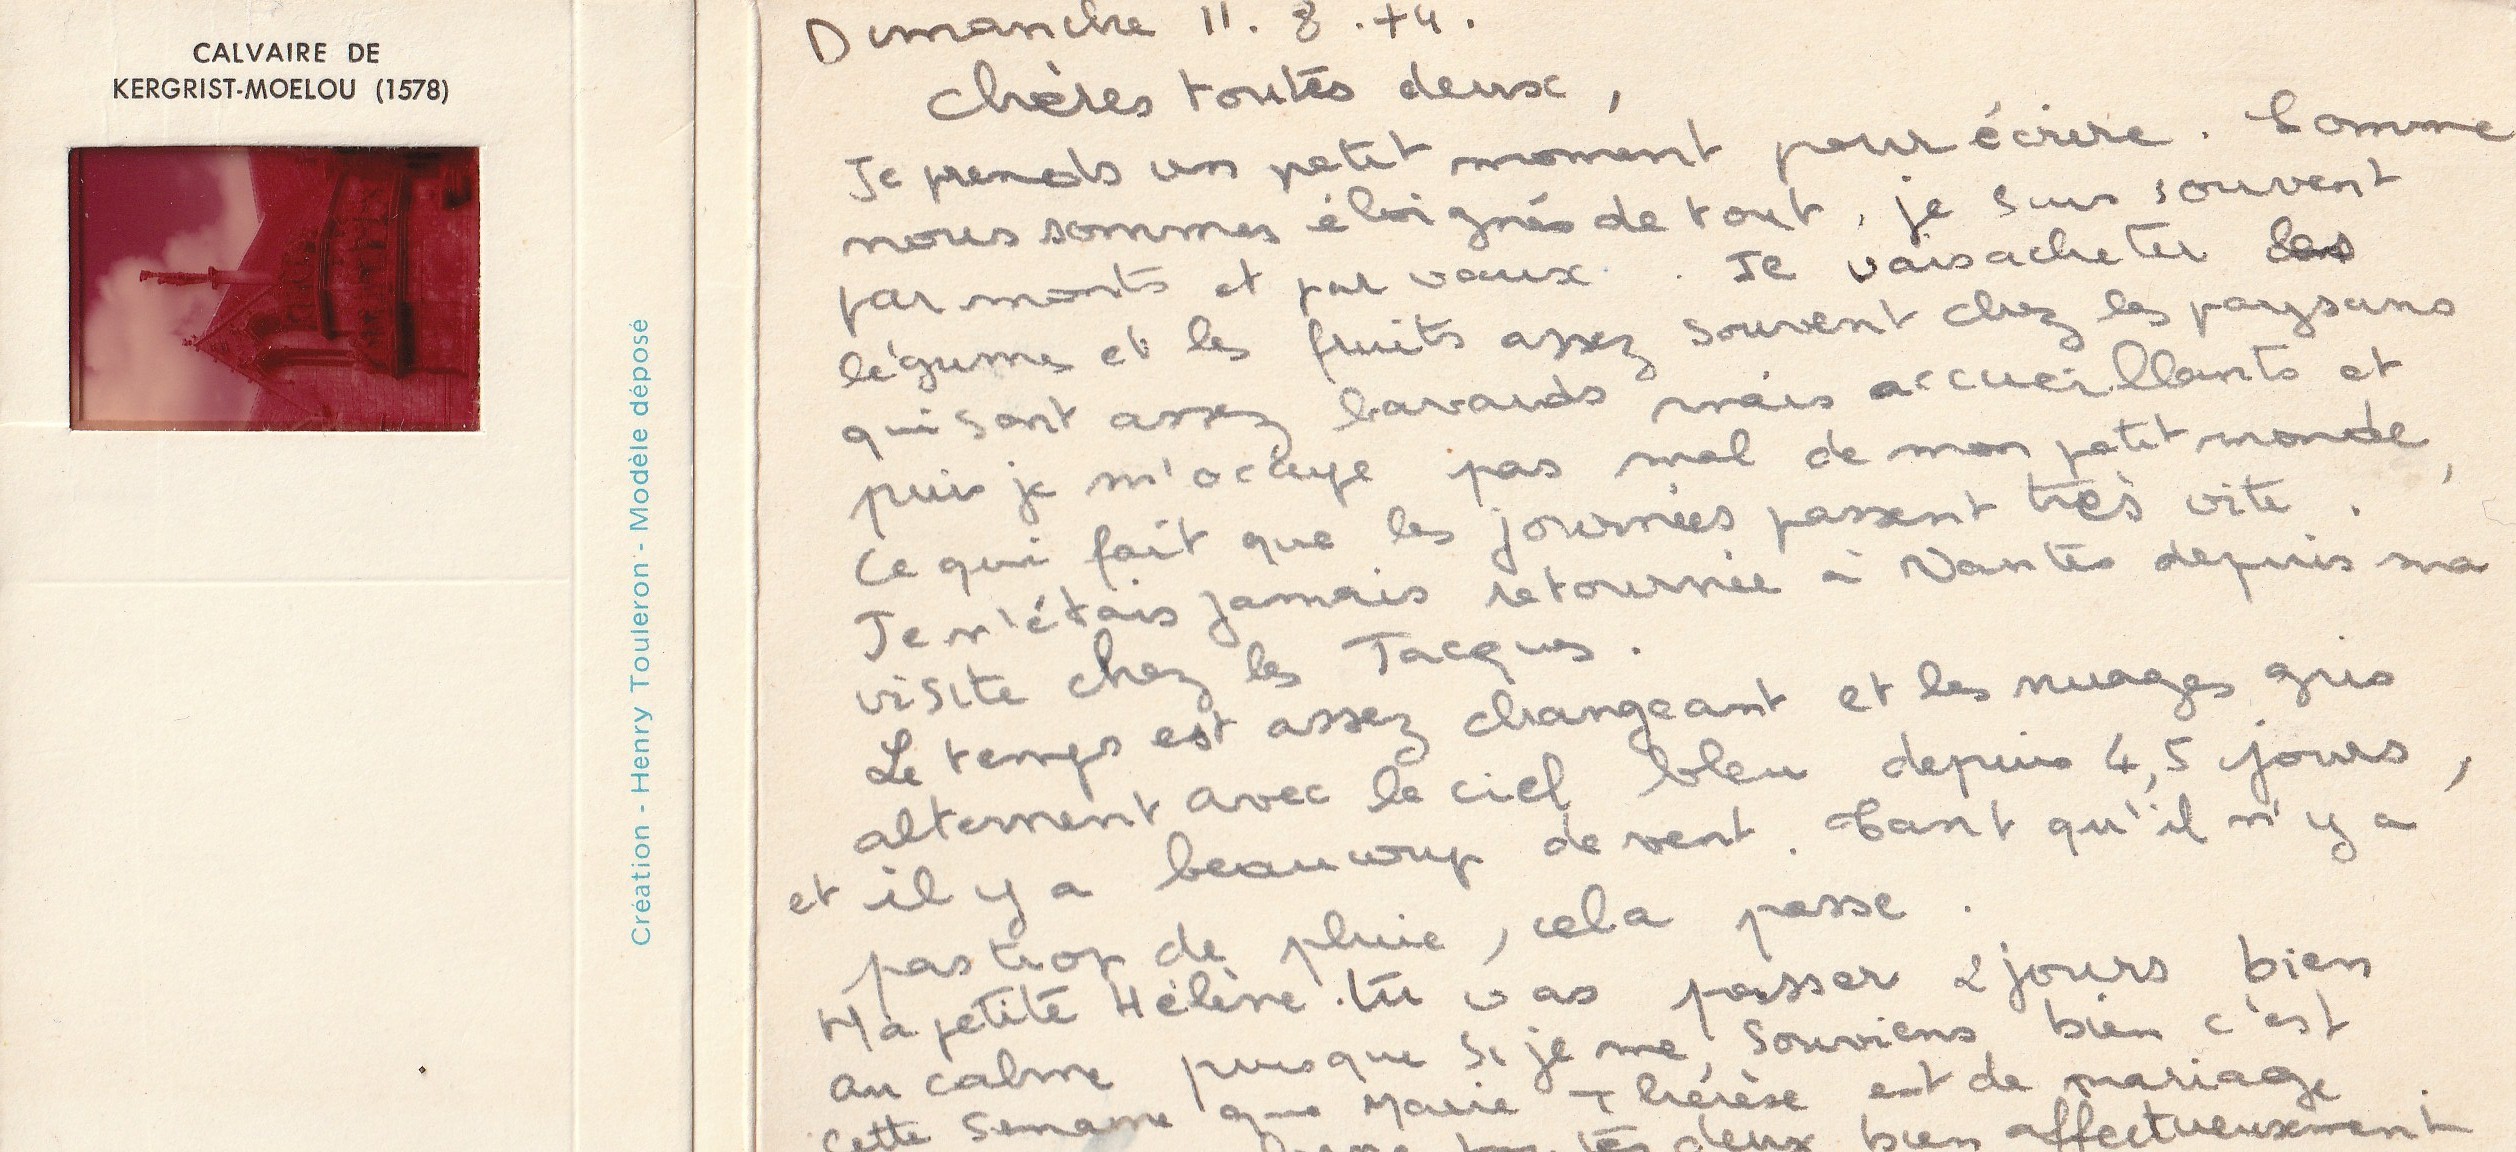 CALVAIRE DE
KERGRIST-MOELOU (1578)
Création - Henry Touleron - Modèle déposé
Dimanche 11. 8. 74.
Chères toutes deux,
Je prends un petit moment pour écrire. Comme
nous sommes éloignés de tout, je suis souvent
par monts et par vaux. Je vais acheter les
légumes et les fruits assez souvent chez les paysans
qui sont assez bavards mais accueillants et
puis je m'occupe pas mal de mon petit monde,
Ce qui fait que les journées passent très vite.
Je n'étais jamais retournée à Nantes depuis ma
visite chez les Jacques.
Le temps est assez changeant et les nuages gris
alternent avec le ciel bleu depuis 4,5 jours,
et il y a beaucoup de vent. Tant qu'il n'y a
pas trop de pluie, cela passe.
Ma petite Hélène. tu vas passer 2 jours bien
au calme puisque si je me souviens bien c'est
cette semaine que Marie-Thérèse est de mariage.
toutes deux bien affectueusement